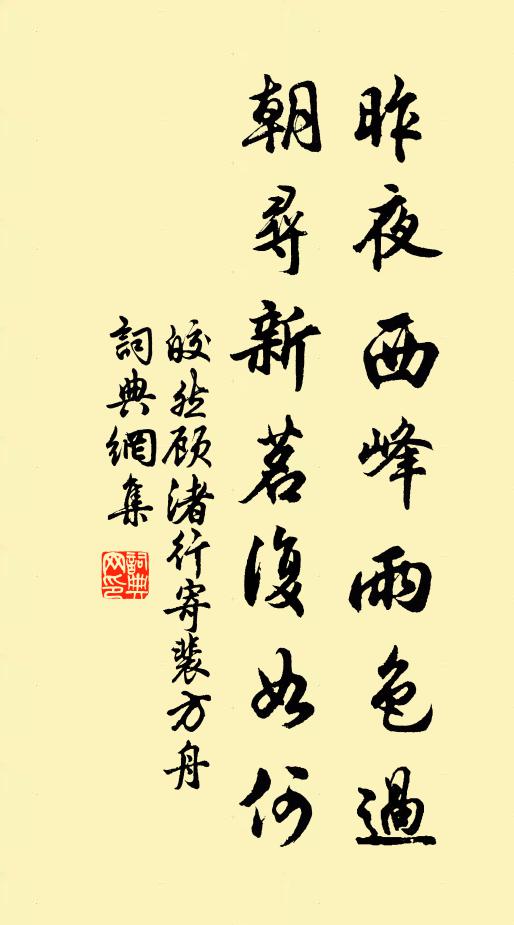 昨夜西峰雨色過
朝尋新茗復如何
皎然顾渚行寄裴方舟
詞典網集
詞典网印